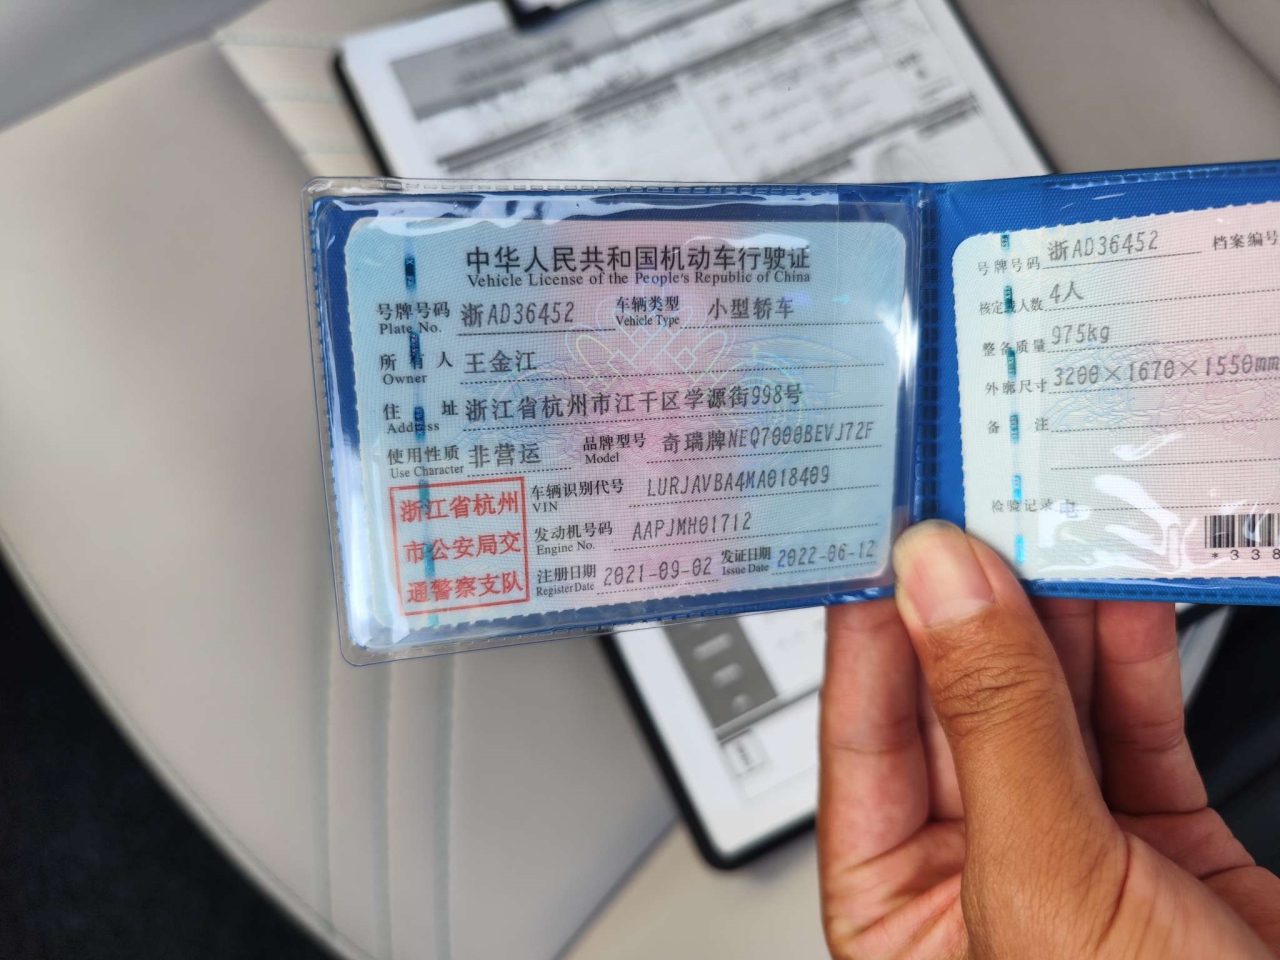 中华人民共和国机动车行驶证
Vehicle License of the People's Republic of China
号牌号码 浙AD36452 车辆类型 小型轿车
Plate No. Vehicle Type
所有人 王金江
Owner
住址 浙江省杭州市江干区学源街998号
Address
使用性质 非营运 品牌型号 奇瑞牌NEQ7000BEVJ72F
Use Character Model
浙江省杭州
市公安局交
通警察支队
车辆识别代号 LURJAVBA4MA018409
VIN
发动机号码 AAPJMH01712
Engine No.
注册日期 2021-09-02 发证日期 2022-06-12
Register Date Issue Date
号牌号码 浙AD36452 档案编号
核定载人数 4人
整备质量 975kg
外廓尺寸 3200×1670×1550mm
备注
检验记录 电
*338